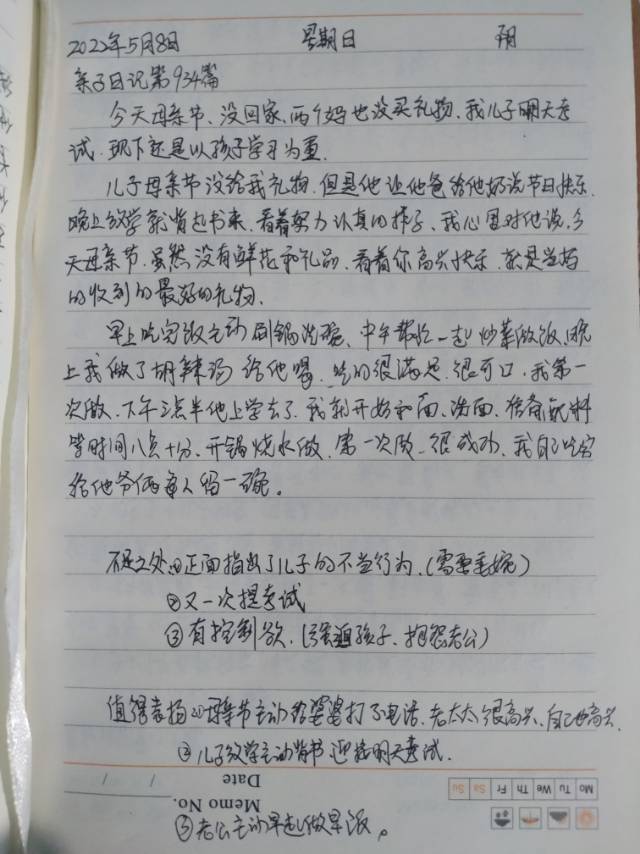 2022年5月8日 星期日 阴
亲子日记第934篇
今天母亲节、没回家、两个妈也没买礼物、我儿子明天考
试.现下还是以孩子学习为重.
儿子母亲节没给我礼物.但是他让他爸给他奶说节日快乐.
晚上放学就背起书来.看着努力认真的样子、我心里对他说,今
天母亲节.虽然没有鲜花和礼品.看着你高兴快乐.就是当妈
的收到的最好的礼物.
早上吃完饭主动刷锅洗碗、中午帮忙一起炒菜做饭,晚
上我做了胡辣汤给他喝.吃的很满足.很可口.我第一
次做.下午三点半他上学去了.我就开始和面、洗面.准备配料
等时间八点十分、开锅烧水做.第一次做、很成功、我自己吃完
给他爷俩每人留一碗。
不足之处:①正面指出了儿子的不当行为.(需要委婉)
②又一次提考试
③有控制欲.(强迫孩子、抱怨老公)
值得表扬①母亲节主动给婆婆打了电话.老太太很高兴、自己也高兴.
②儿子放学主动背书迎接明天考试.
③老公主动早起做早饭。
Mo Tu We Th Fr Sa Su
Memo No.
Date / /